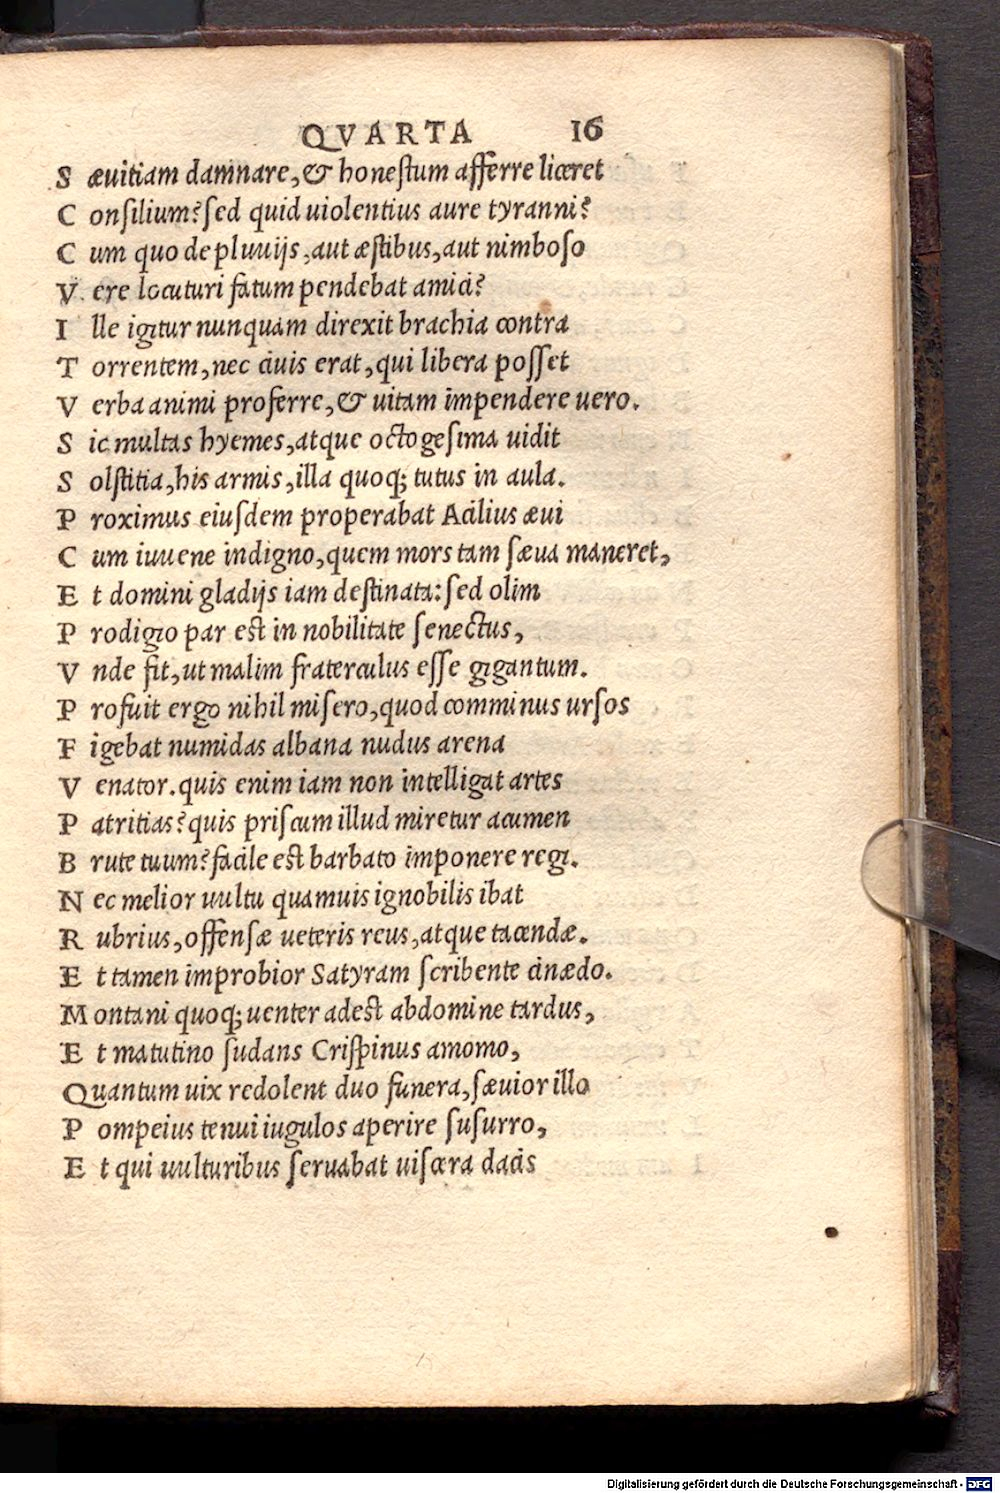 QVARTA 16
S æuitiam damnare, & honeſtum afferre liceret
C onſilium? ſed quid uiolentius aure tyranni?
C um quo de pluuijs, aut æſtibus, aut nimboſo
V ere locuturi fatum pendebat amici?
I lle igitur nunquam direxit brachia contra
T orrentem, nec ciuis erat, qui libera poſſet
V erba animi proferre, & uitam impendere uero.
S ic multas hyemes, atque octogeſima uidit
S olſtitia, his armis, illa quoq; tutus in aula.
P roximus eiuſdem properabat Acilius æui
C um iuuene indigno, quem mors tam ſæua maneret,
E t domini gladijs iam deſtinata: ſed olim
P rodigio par eſt in nobilitate ſenectus,
V nde fit, ut malim fraterculus eſſe gigantum.
P rofuit ergo nihil miſero, quod comminus urſos
F igebat numidas albana nudus arena
V enator. quis enim iam non intelligat artes
P atritias? quis priſcum illud miretur acumen
B rute tuum? facile eſt barbato imponere regi.
N ec melior uultu quamuis ignobilis ibat
R ubrius, offenſæ ueteris reus, atque tacendæ.
E t tamen improbior Satyram ſcribente cinædo.
M ontani quoq; uenter adeſt abdomine tardus,
E t matutino ſudans Criſpinus amomo,
Quantum uix redolent duo funera, ſæuior illo
P ompeius tenui iugulos aperire ſuſurro,
E t qui uulturibus ſeruabat uiſcera dacis
Digitalisierung gefördert durch die Deutsche Forschungsgemeinschaft - DFG